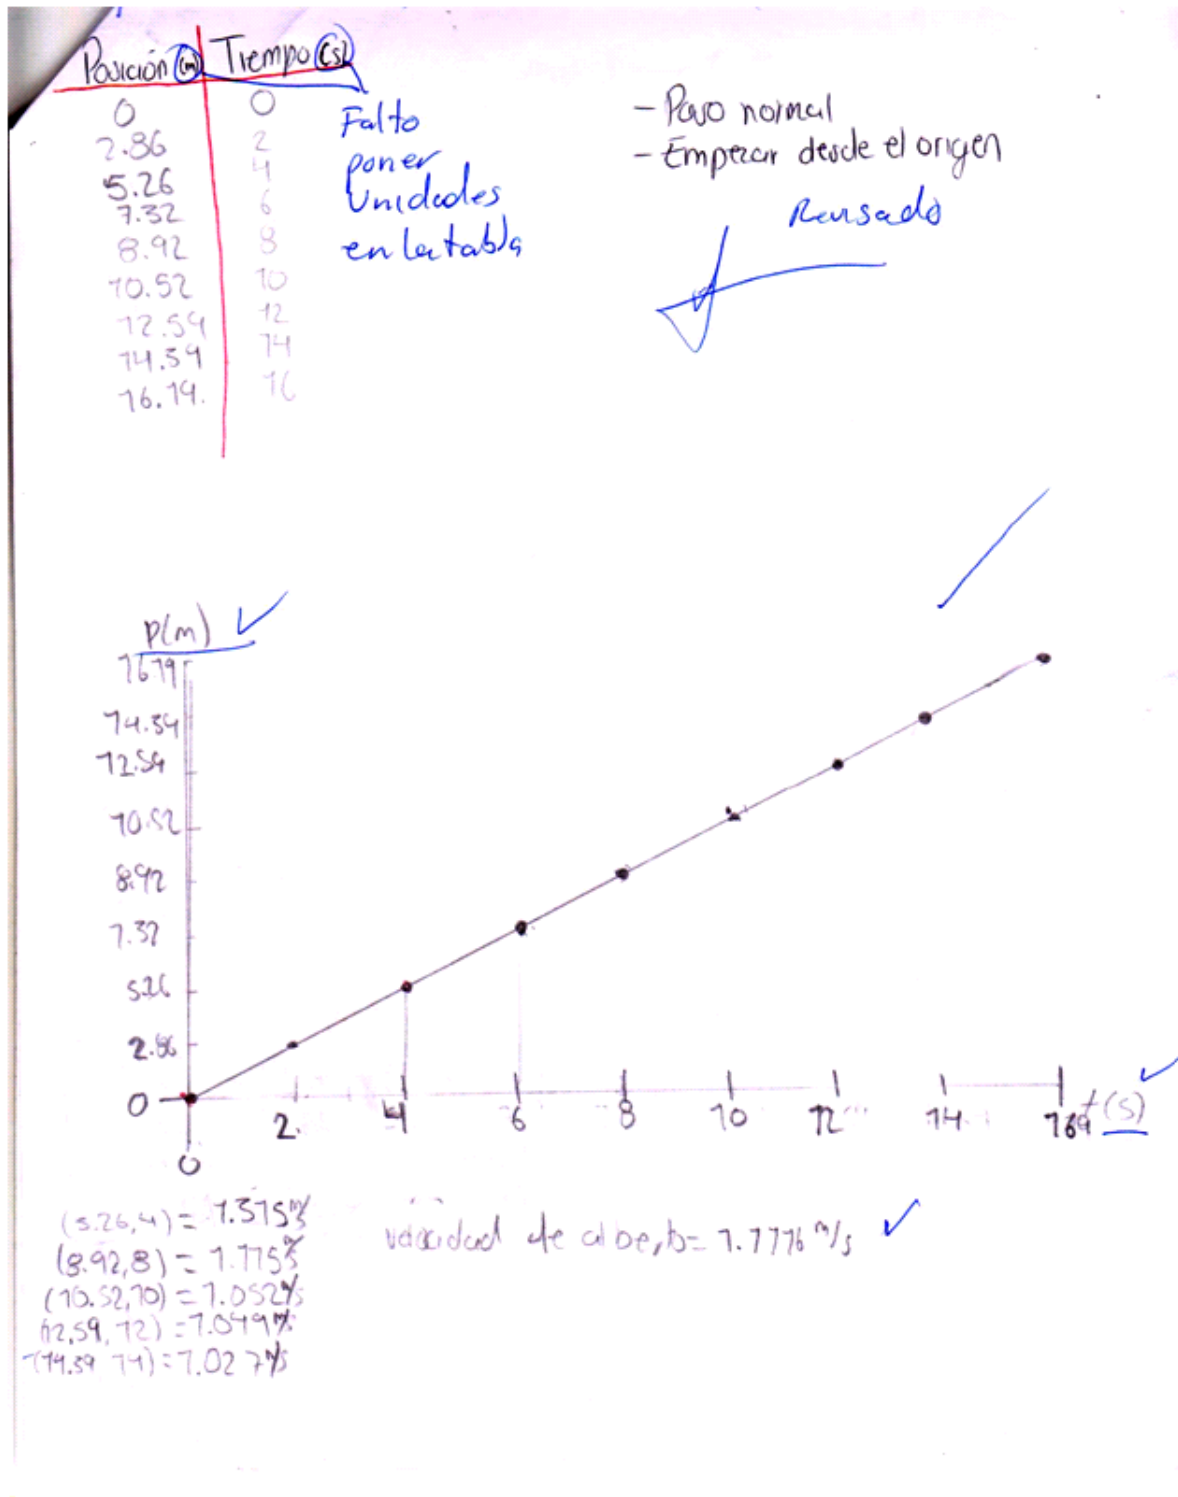 Posición (m) Tiempo (s)
0 0
2.86 2
5.26 4
7.32 6
8.92 8
10.52 10
12.59 12
14.39 14
16.19. 16
Falto
poner
Unidades
en la tabla
- Paso normal
- Empezar desde el origen
Revisado
P(m)
16.19
14.39
12.59
10.52
8.92
7.32
5.26
2.86
0
0 2. 4 6 8 10 12 14 16 t(s)
(5.26,4) = 1.315 m/s
(8.92,8) = 1.115 m/s
(10.52,10) = 1.052 m/s
(12.59, 12) = 1.049 m/s
(14.39 14) = 1.027 m/s
velocidad de = 1.1116 m/s